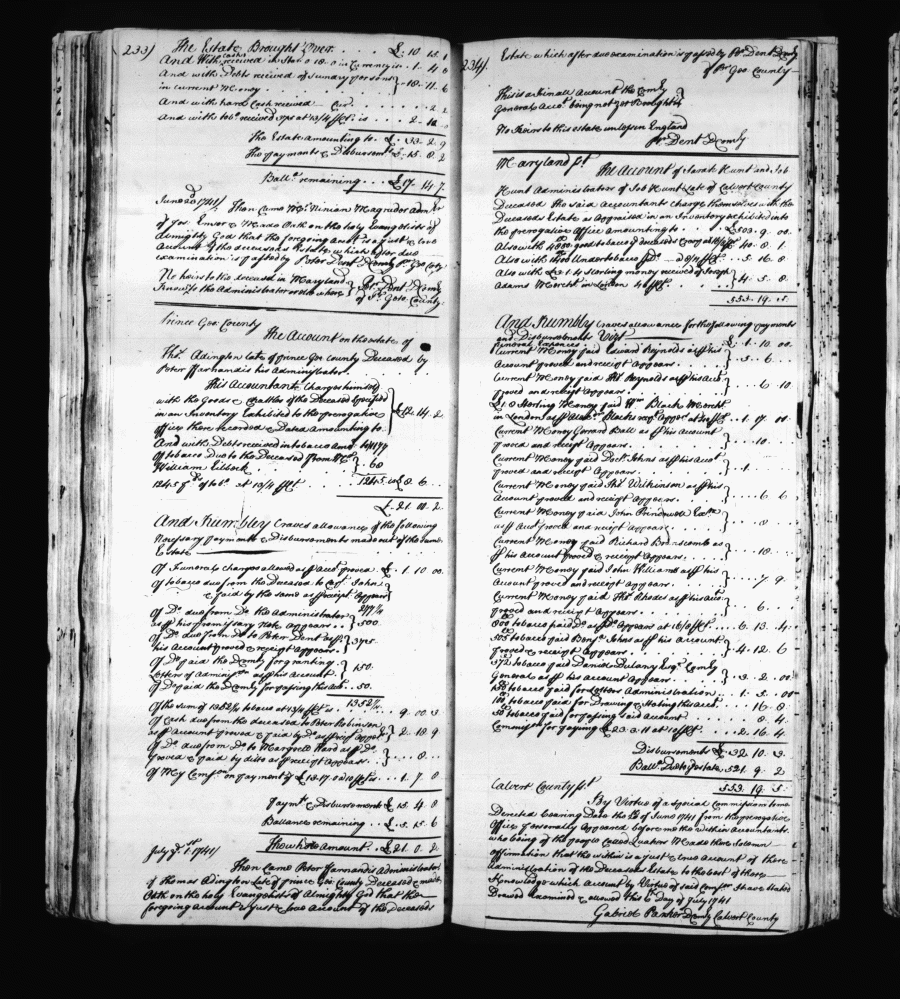 233/ The Estate Brought Over . . . . £ 10 15 1
And With Cash received in Star. a 18-0 in Currency is 1 . 4 . 6
And with Debts received of Sundry persons
in current Money . . . } 18 . 11 . 6
And with hard Cash received Cur. . . . 2 . 2
And with tobo. received at 13/4 ℔Ct. is . . 2 . 10
The Estate amounting to £ 33 . 2 . 9
The Payments & Disbursemts £ 15 . 8 . 2
Balla. remaining . . . £ 17 . 14 . 7
June 20th 1741/ Then Came Mrs. Ninian Magruder Admr.
of Jos. & Made Oath on the holy Evangelists of
Almighty God that the foregoing acct. is a just & true
Account of the deceaseds Estate which after due
examination is passed by Peter Dent Dcomry Pr. Geo. Coty.
No heirs to the deceased in Maryland
Known to the Administrator or else where } Pr. Dent Dcomy
of Pr. Geo. County
Prince Geo: County
The Account on the Estate of
Thos. Adington late of prince Geo county Deceased by
Peter Farnandis his Administrator.
This Accountant Charges himself
with the Goods & Chattles of the Deceased Specified
in an Inventory Exhibited to the prerogative
office there recorded & Dated Amounting to } £ 12 . 14 . 2
And with Debts received in tobacco Amo. to 1177
Of tobacco Due to the Deceased from Mr.
William Eilbeck . . . } 68
1245 ps. of tobo. at 13/4 ℔Ct. . . 1245 is £ 8 . 6 . .
£ 21 . 00 . 2
And Humbley Craves allowance of the following
Necessary payments & Disbursements made out of the same
Estate
Of Funeral charges allowed as ℔ acct. proved £ 1 . 10 . 00
Of tobacco due from the Deceased to Capt. John
& paid by the same as ℔ receipt appears } 277½
Of Do. due from Do. the Administrator
as ℔ his promissary Note appears . . } 500
Of Do. due from Do. to Peter Dent as ℔
his Account proved & receipt appears . } 375
Of Do. paid the Dcomry for granting
Letters of Administn. as ℔ his account } 150
Of Do. paid the Dcomry for passing this acct. 50
1352½
Of the sum of 1352½ tobacco at 13/4 ℔Ct. is . . 9 . 00 . 3
Of Cash due from the deceased to Peter Robinson
as ℔ Account proved & paid by Do. as ℔ receipt appears } 2 . 18 . 9
Of Do. due from Do. to Margrett Ward as ℔ Do.
proved & paid by ditto as ℔ receipt appears } . 8 .
Of My Comssn. on payment of £ 13 . 17 . 0 a 10 ℔Ct. is . 1 . 7 . 8
Paymts. & Disbursements £ 15 . 4 . 8
Ballance remaining . £ 5 . 15 . 6
The whole Amount . £ 21 . 0 . 2
July ye. 1st. 1741/
Then Came Peter Farnandis Administrator
of Thomas Adington Late of prince Geo: County Deceased & made
Oath on the holy Evangelist of Almighty God that the
foregoing account is Just & true Account of the Deceaseds
234/. Estate which after due examination is passed by Pr. Dent Dcomry
of Pr. Geo. County
This is a Finall Account the Comry
Generals Acct. being not yet Brought in }
No Heirs to this estate unless in England
Pr. Dent Dcomry
Maryland ss. The Account of Sarah Hunt and Job
Hunt Administrators of Job Hunt Late of Calvert County
Deceased The said Accountants Charge themselves with the
Deceaseds Estate as Appraised in an Inventory exhibited into
the prerogative Office amounting to . . £ 503 . 9 . 00
Also with 4880 good tobacco ye deceased Crop at 16/8 ℔Ct. 40 . 8 . 1
Also with 1400 Under tobacco . . a 8/4 ℔Ct. . . 5 . 16 . 8
Also with £ 2 . 1 . 4 sterling money received of Joseph
Adams Mercht. in London } 4 . 5 . 8
553 . 19 . 5
And Humbly Craves allowance for the following payments
and Disbursements Vizt.
Funeral Expences . . . £ 1 . 10 . 00
Current Money paid Edward Reynolds as ℔ his
Account proved and receipt Appears } . 5 . 6
Current Money paid Thos. Reynolds as ℔ his Acct.
proved and receipt Appears } . 6 . 10
£1 . 0 Sterling Money paid Wm. Black Mercht.
in London as ℔ Alexr. Blacks recpt. appear at ℔Ct. 1 . 17 . 00
Current Money Gerard Ball as ℔ his Account
proved and receipt Appears } . 10 .
Current Money paid Doctr. Johns as ℔ his Acct.
proved and receipt Appears } . 1 .
Current Money paid Thos. Wilkinson as ℔ his
Account proved and receipt Appears } . 6 . 6
Current Money paid John Prindwell
as ℔ Acct. proved and receipt Appears } . 8 .
Current Money paid Richard as
℔ his Account proved & receipt Appears } . 10 .
Current Money paid John Williams as ℔ his
Account proved and receipt Appears } . 7 . 9
Current Money paid Thos. Rhodes as ℔ his Acct.
proved and receipt Appears } . 6 .
800 tobacco paid Do. as ℔ Do. Appears at 16/8 ℔Ct. 6 . 13 . 4
555 tobacco paid Benja. Johns as ℔ his Account
proved & receipt Appears } 4 . 12 . 6
372 tobacco paid Daniel Dulany Esqr. Comry
General as ℔ his account Appears } 3 . 2 . 00
150 tobacco paid for Letters Administration . . 1 . 5 . 00
100 tobacco paid for Drawing & Stating this acct. 16 . 8
50 tobacco paid for passing said Account . . 8 . 4
Comission for paying £ 23 . 3 . 11 at 10 ℔Ct. . 2 . 16 . 4
Disbursements £ 32 . 10 . 3
Balla. Due to ye Estate 521 . 9 . 2
553 . 19 . 5
Calvert County ss.
By Virtue of a Special Commission to me
Derected bearing Date the 12 of June 1741 from the prerogative
Office personally Appeared before me the within Accountants
who being of the people called Quakers Made there Solemn
Affirmation that the within is a just & true account of there
Administration of the Deceaseds Estate to the best of there
Knowledge which Account by Virtue of said Comssn. I have Stated
Drawed examined & allowed this 6th Day of July 1741
Gabriel Parker Dcomry Calvert County